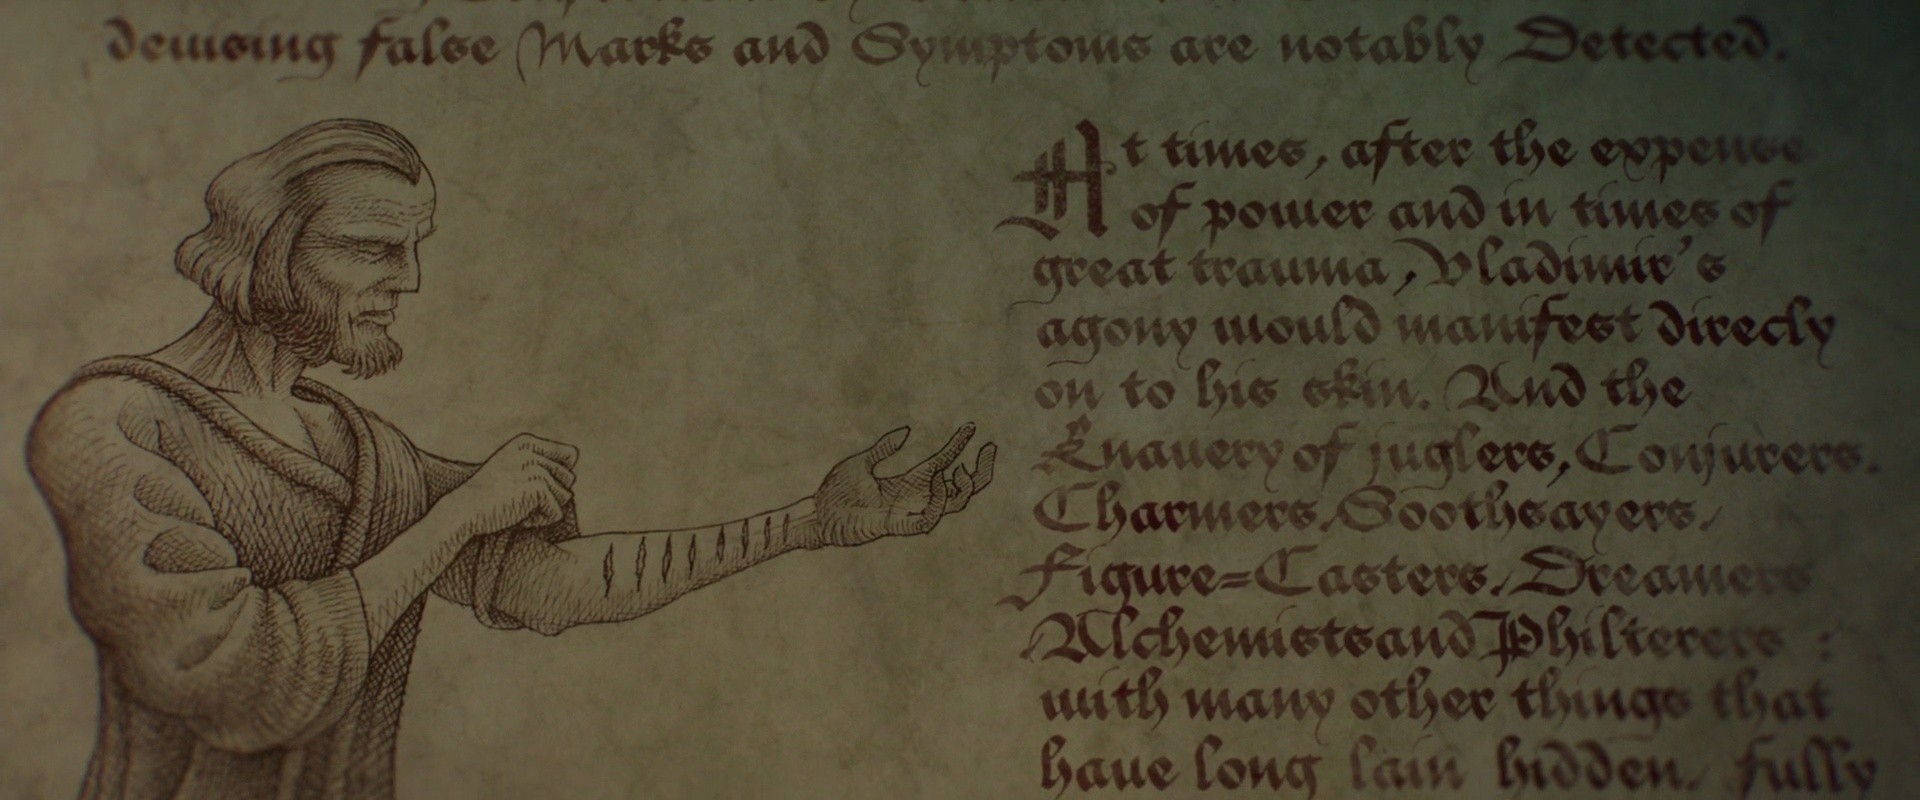 deuising false Marks and Symptoms are notably Detected.
At times, after the expense
of power and in times of
great trauma, Vladimir's
agony would manifest direcly
on to his skin. And the
Knauery of juglers, Conjurers.
Charmers. Soothsayers.
Figure=Casters. Dreamers
Alchemists and Philterers :
with many other things that
haue long lain hidden. fully